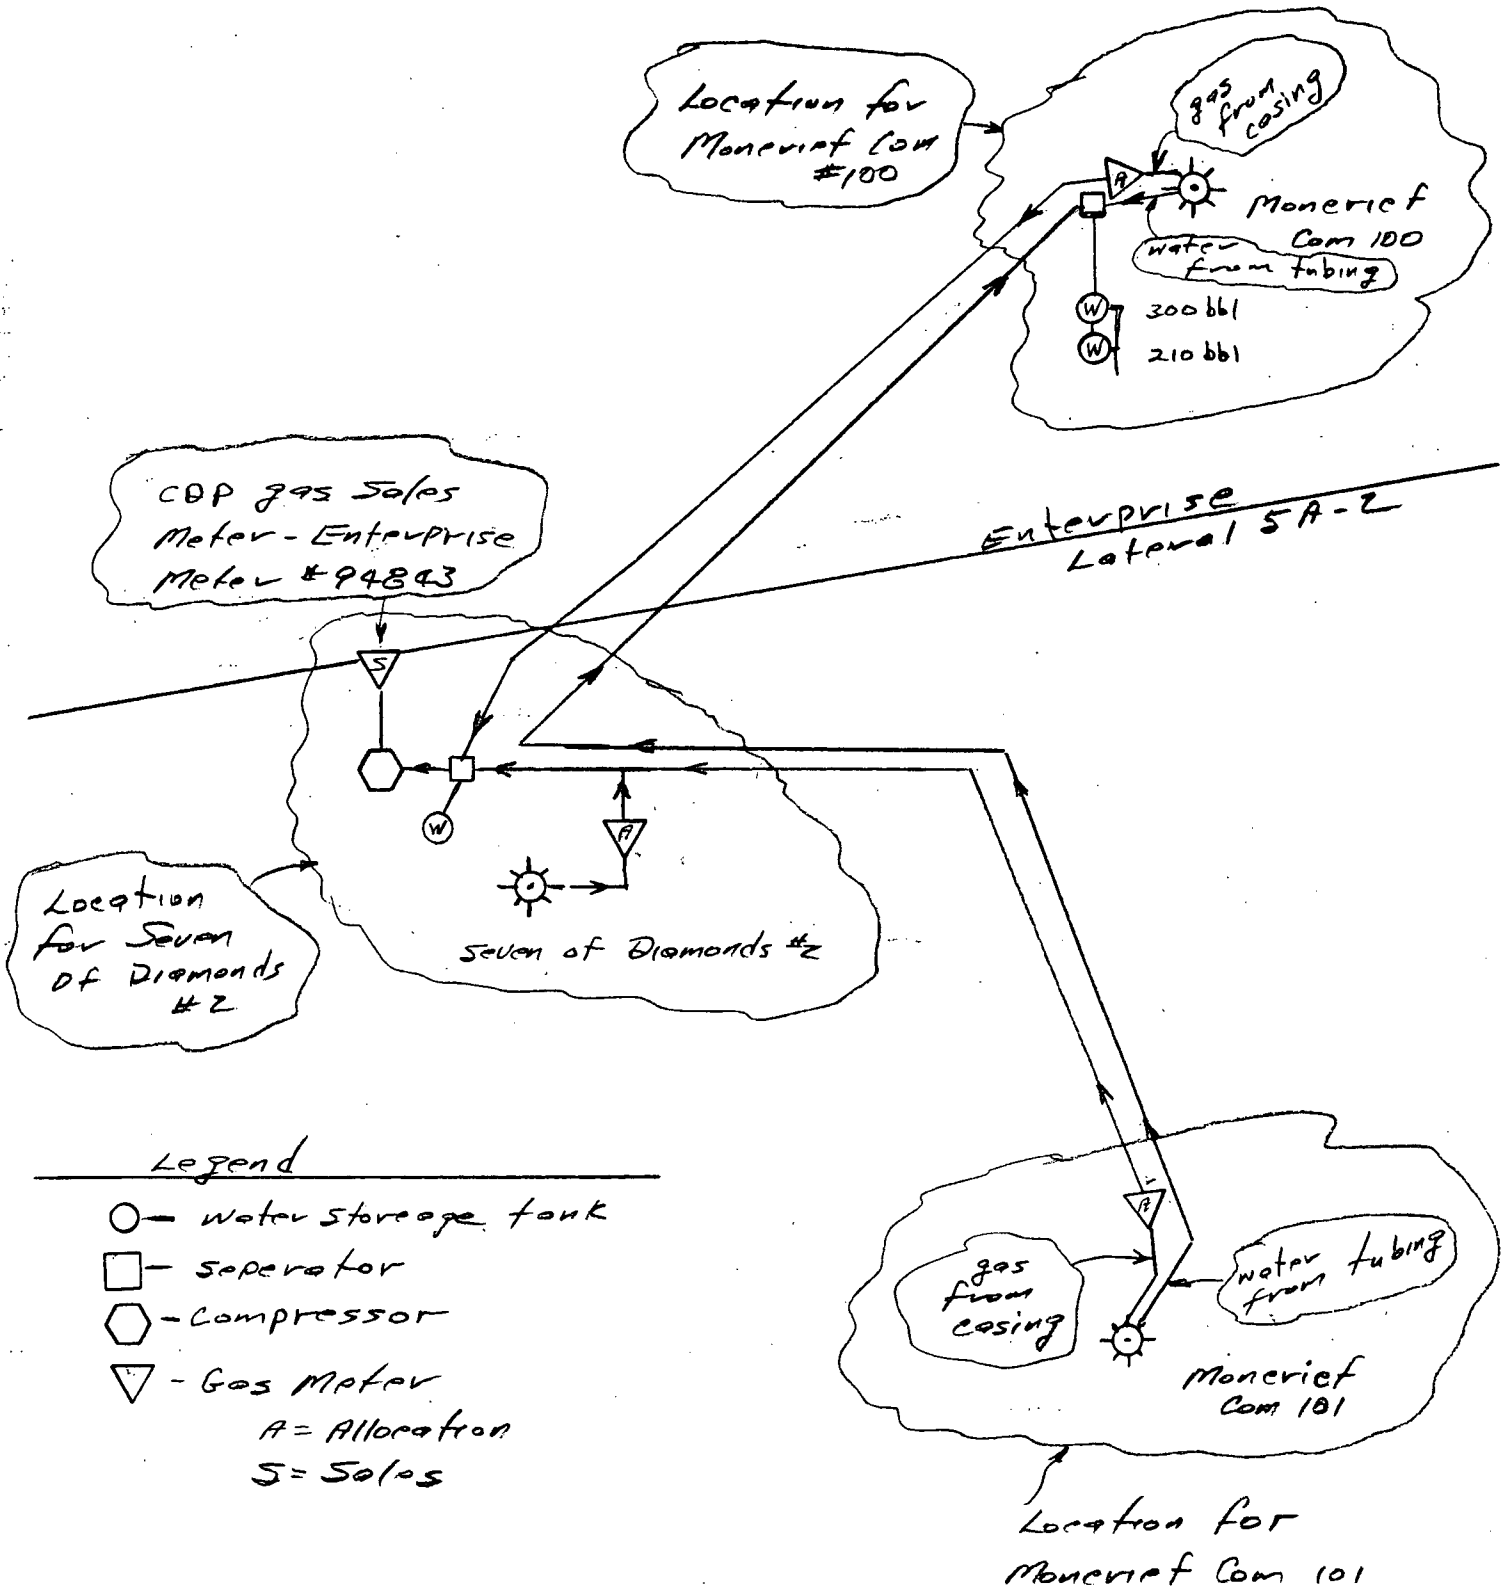 Location for
Moncrief Com
#100
gas
from
casing
A
Moncrief
Com 100
water
from tubing
W
300 bbl
W
210 bbl
CDP gas Sales
Meter - Enterprise
Meter #94843
Enterprise
Lateral 5A-2
S
W
A
Seven of Diamonds #2
Location
for Seven
Of Diamonds
#2
Legend
- water storeage tank
- seperator
- Compressor
- Gas Meter
A = Allocation
S = Sales
A
gas
from
casing
water
from tubing
Moncrief
Com 101
Location for
Moncrief Com 101